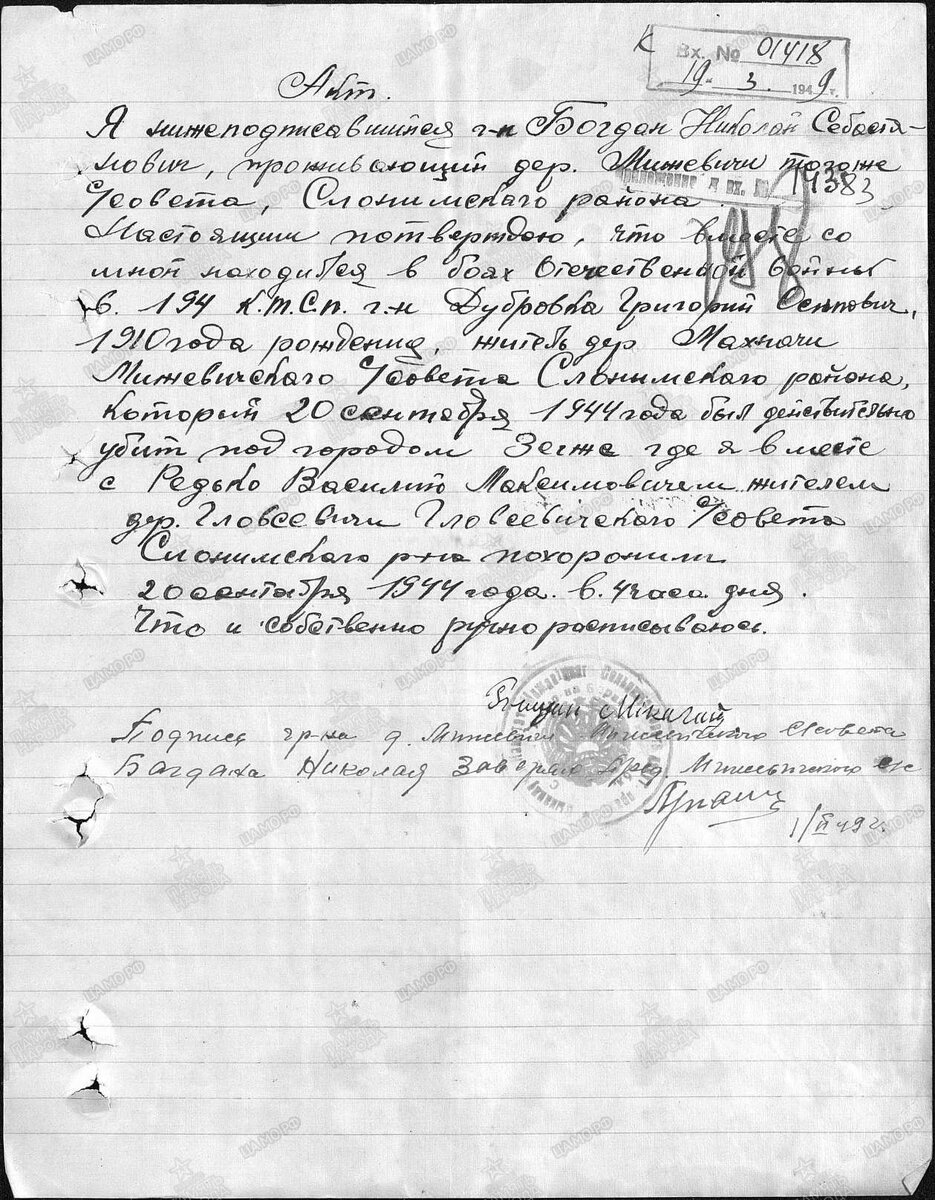 К Вх. № 01418
19 3. 1949 г.
Акт.
Я нижеподписавшийся г-н Богдан Николай Себастя-
нович, проживающий дер. Мижевичи тогоже
Приложение к вх. №
С/совета, Слонимского района.
Настоящим потверждаю, что вместе со
мной находился в боях Отечественной войны
в. 194 к.т.с.п. г-н Дубровка Григорий Осипович,
1910 года рождения, житель дер. Махначи
Мижевичского С/совета Слонимского района,
который 20 сентября 1944 года был действительно
убит под городом Зегже где я вместе
с Редько Василий Максимовичем жителем
дер. Гловсевичи Гловсевичского С/совета
Слонимского р-на похоронили
20 сентября 1944 года. в. 4 часа дня.
Что и собственно ручно расписываюсь.
Подпись гр-на д. С/совета
Багдана Николая Заверяю Пред. с/с
1/II 49 г.
ЦАМО.РФ